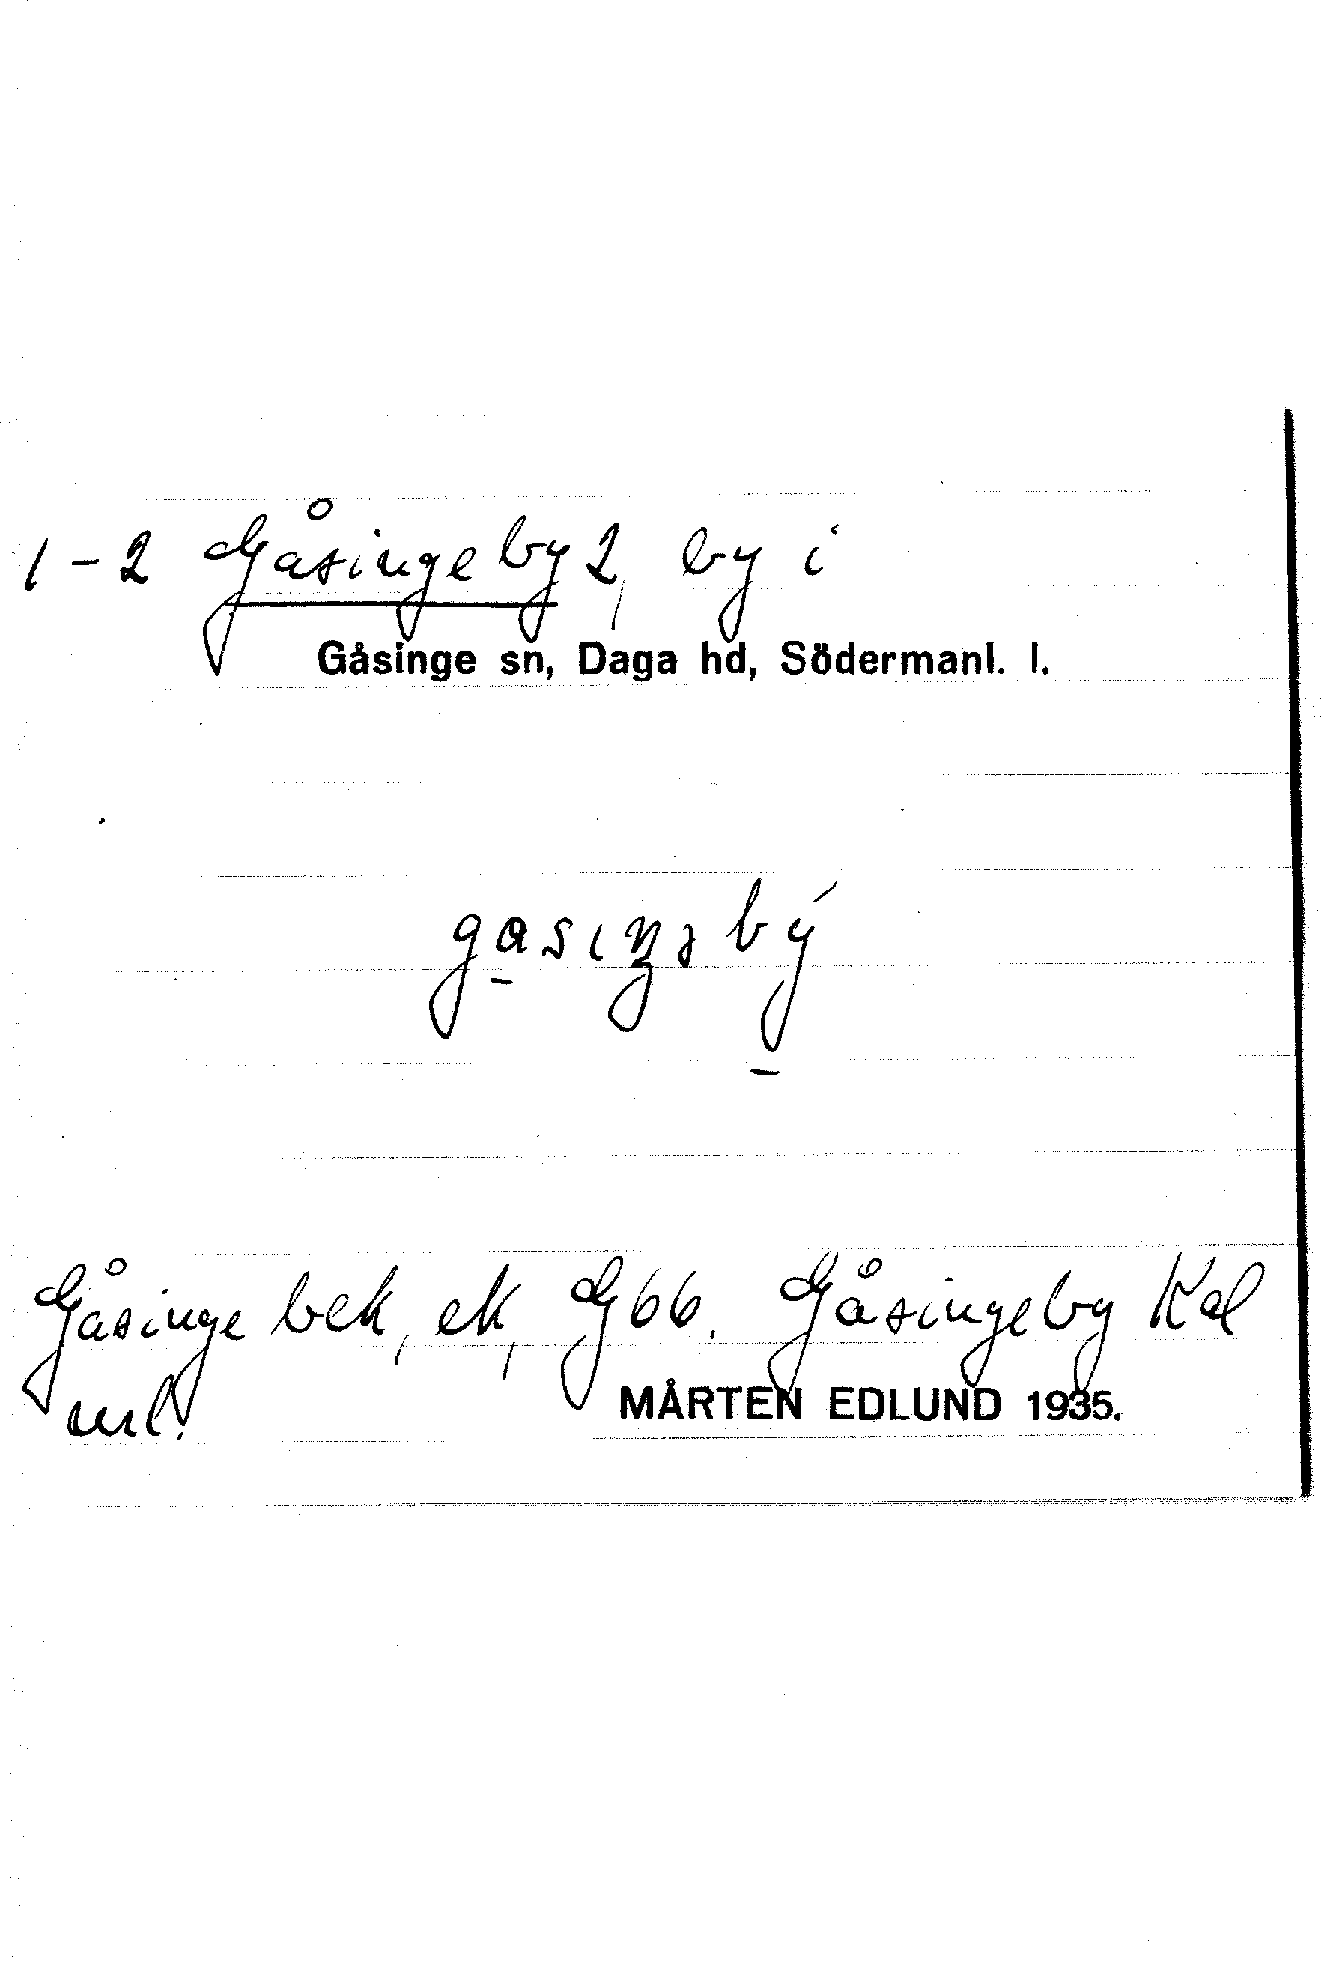 1-2 Gåsingeby 2, by i
Gåsinge sn, Daga hd, Södermanl. l.
gasıŋəbý
Gåsinge bek, ek, G66. Gåsingeby Kal
ml.
MÅRTEN EDLUND 1935.